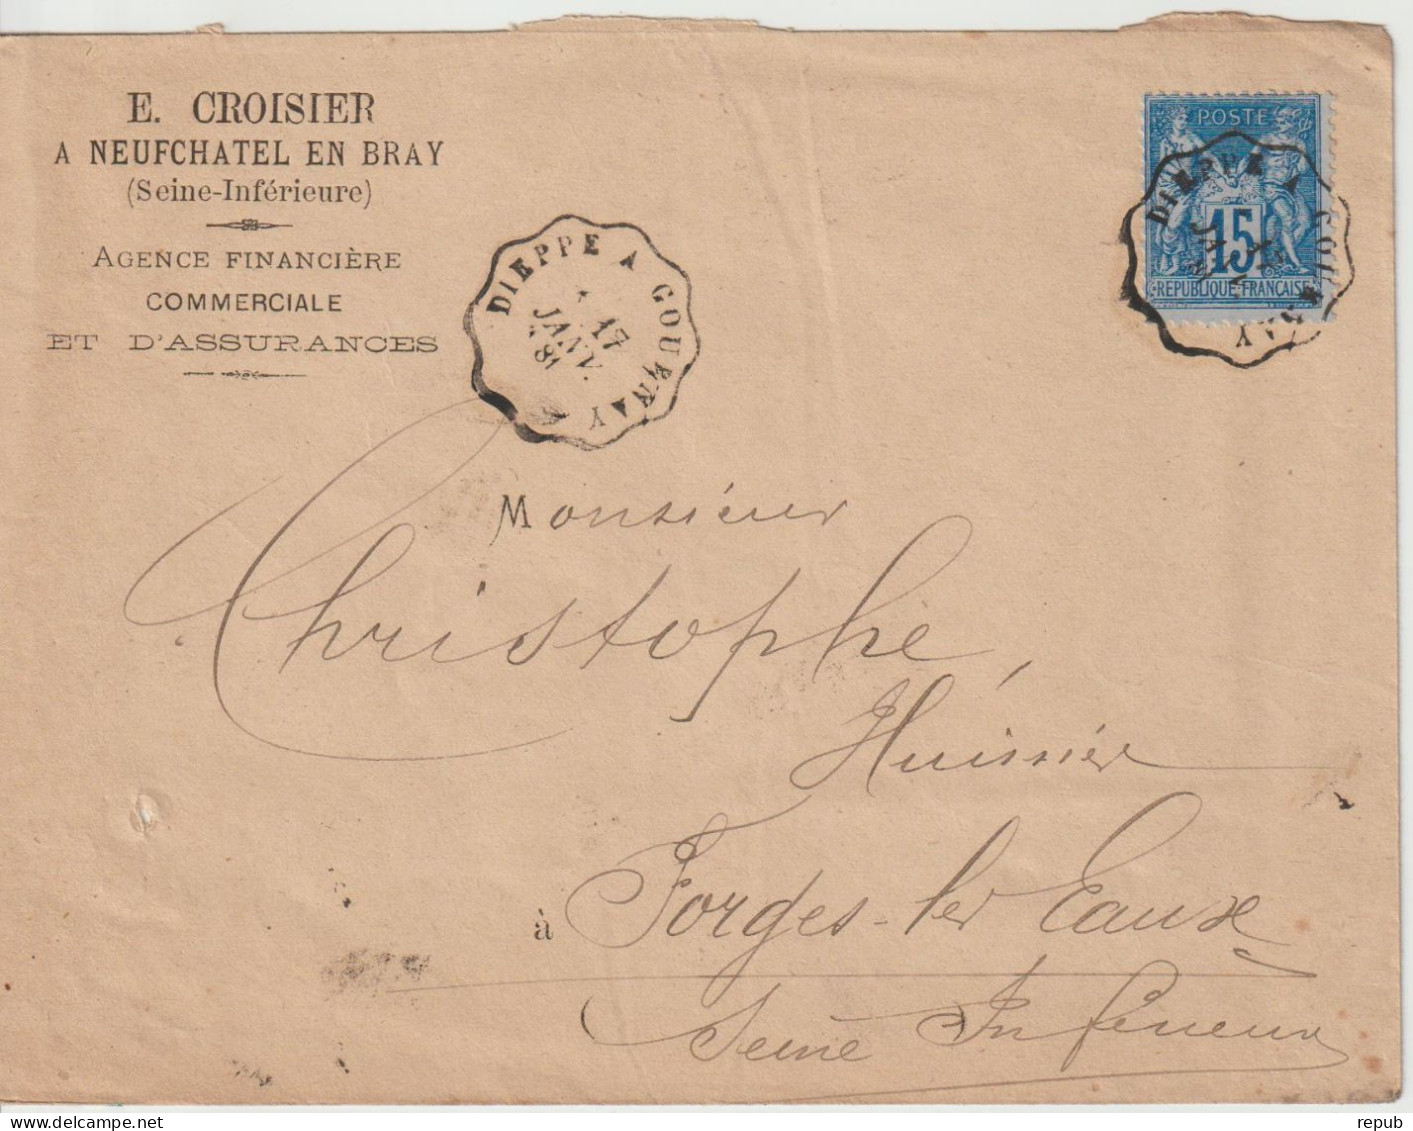 E. CROISIER
A NEUFCHATEL EN BRAY
(Seine-Inférieure)
AGENCE FINANCIÈRE
COMMERCIALE
ET D'ASSURANCES
DIEPPE A GOURNAY
17
JANV.
81
POSTE
15
REPUBLIQUE FRANÇAISE
DIEPPE A GOURNAY
17
JANV.
Monsieur
Christophe,
Huissier
à Forges-les Eaux
Seine Inférieure
delcampe.net
repub